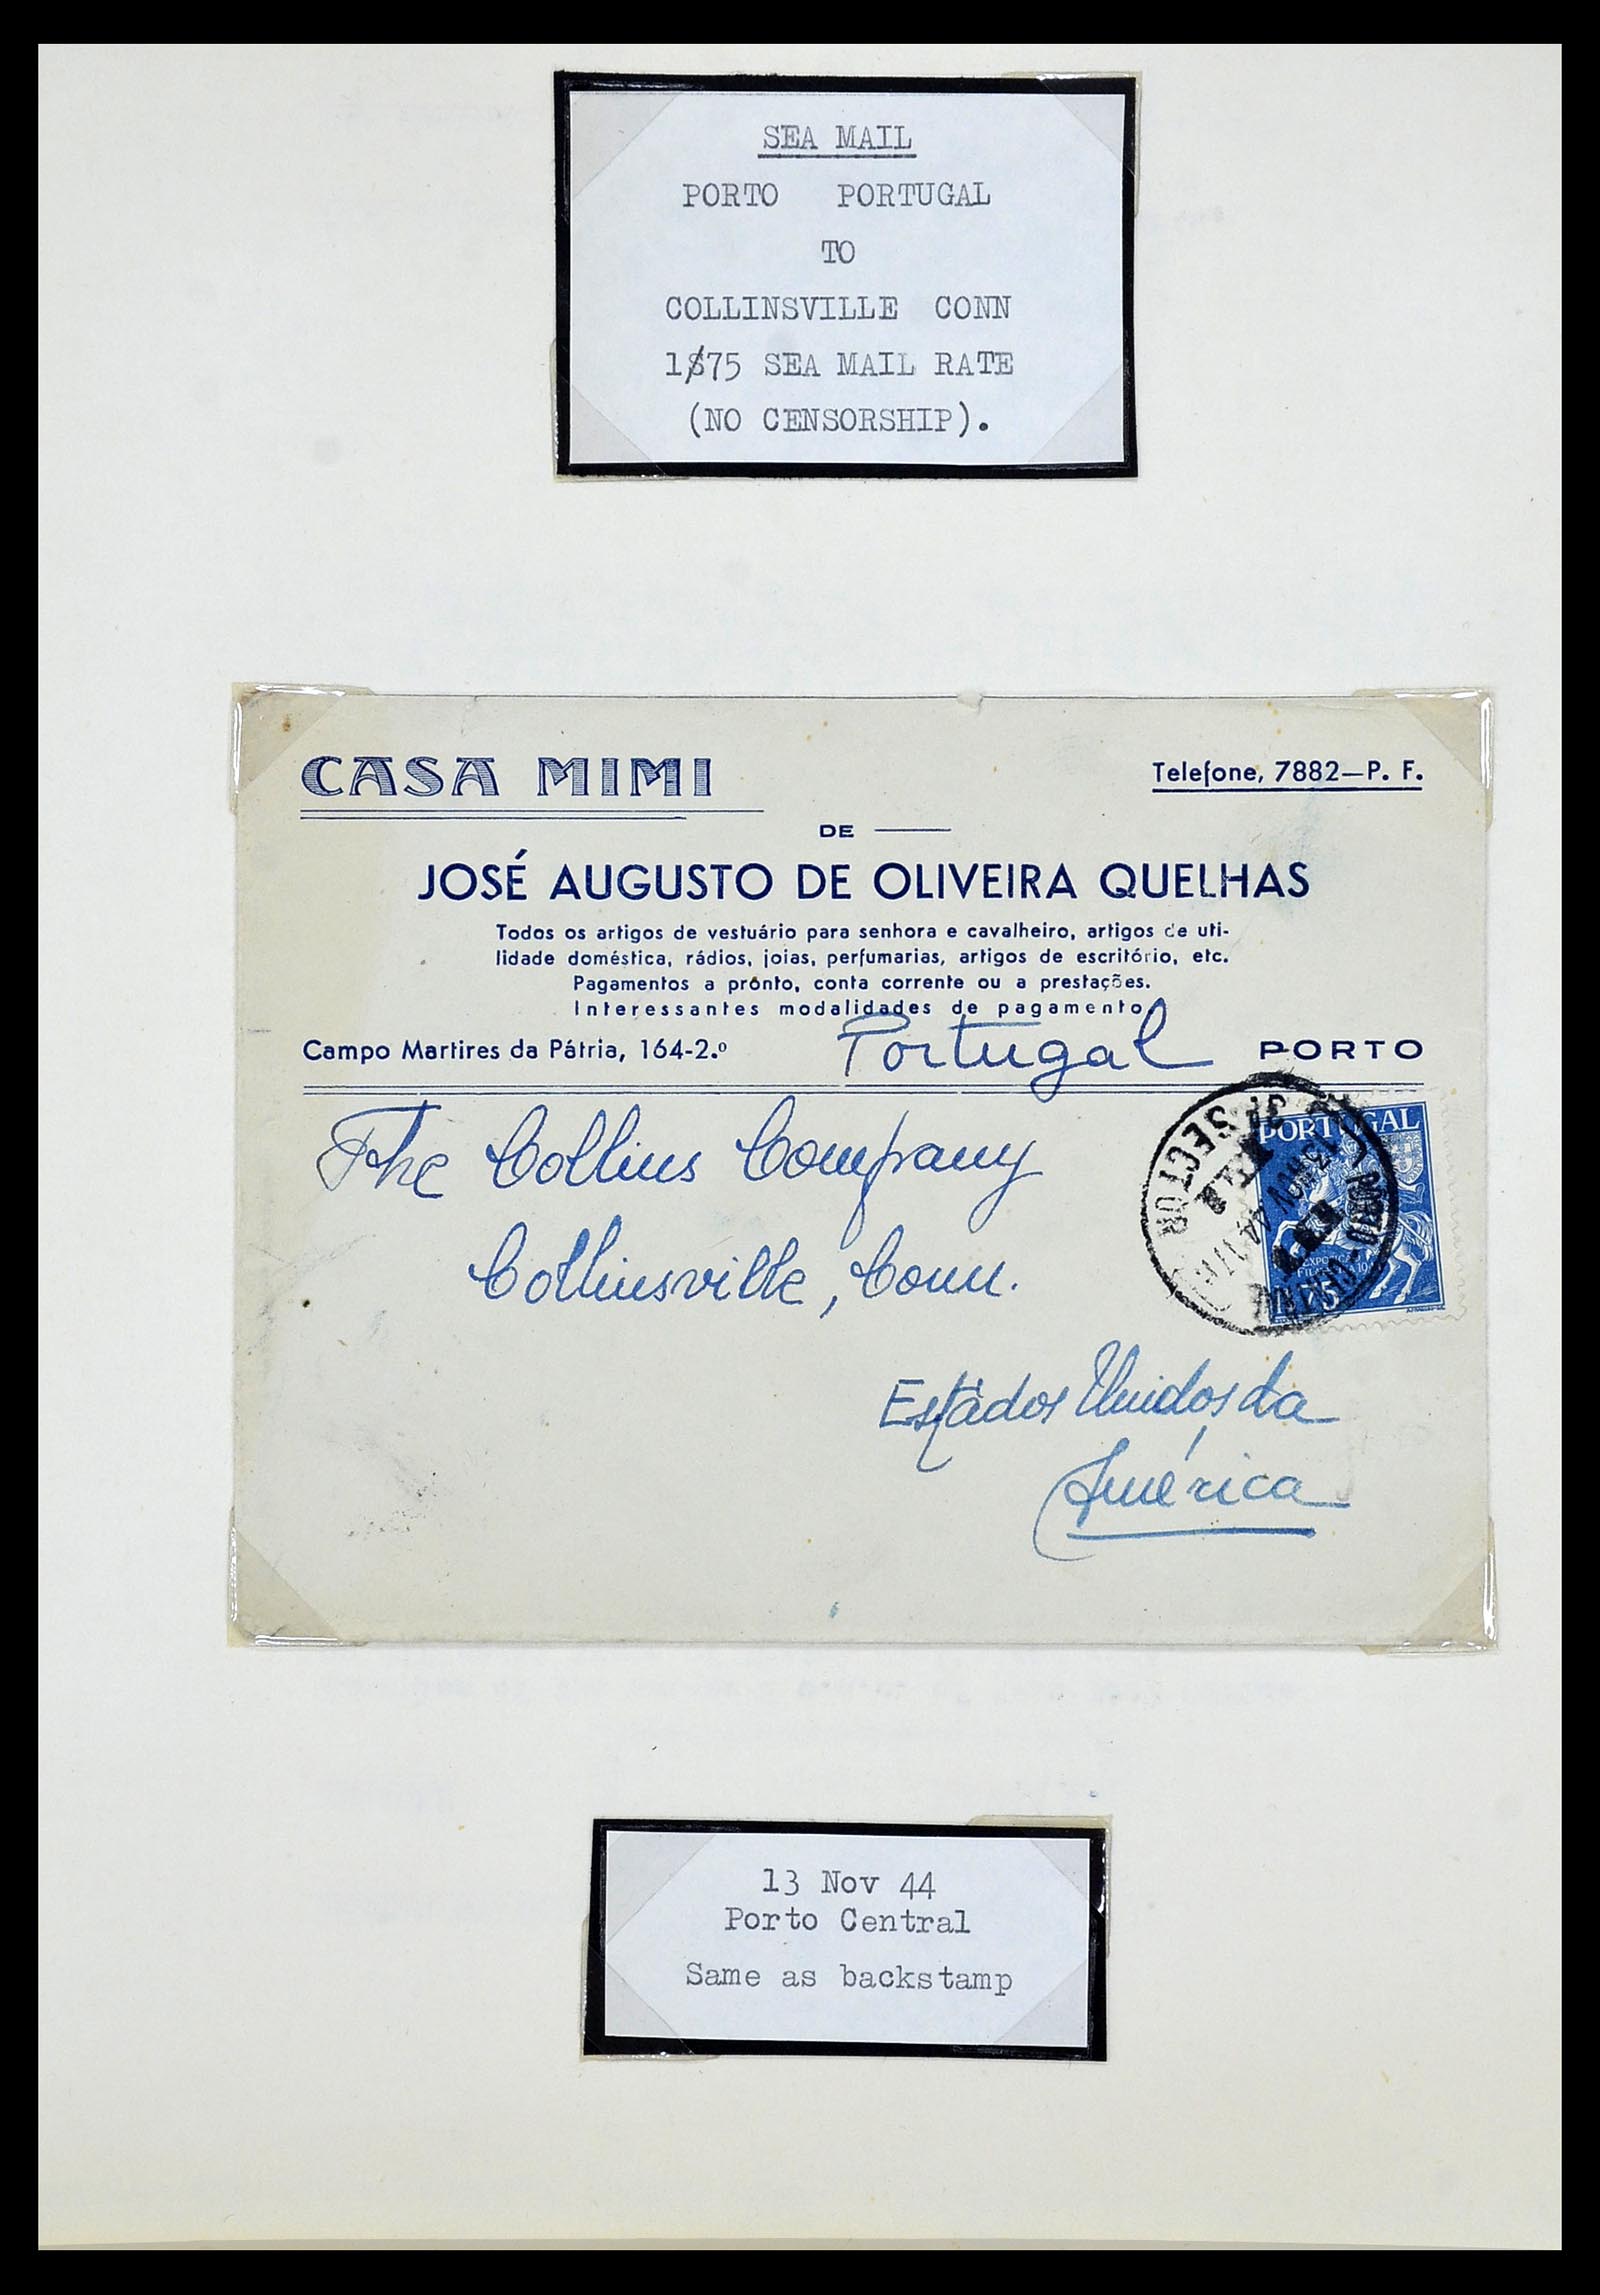 SEA MAIL
PORTO PORTUGAL
TO
COLLINSVILLE CONN
1$75 SEA MAIL RATE
(NO CENSORSHIP).
CASA MIMI
Telefone, 7882—P. F.
DE
JOSÉ AUGUSTO DE OLIVEIRA QUELHAS
Todos os artigos de vestuário para senhora e cavalheiro, artigos de uti-
lidade doméstica, rádios, joias, perfumarias, artigos de escritório, etc.
Pagamentos a pronto, conta corrente ou a prestações.
Interessantes modalidades de pagamento
Campo Martires da Pátria, 164-2.º
Portugal
PORTO
The Collins Company
Collinsville, Conn.
Estados Unidos da
América
PORTUGAL
PORTO-CENTRAL
13 NOV 44
SECTOR
13 Nov 44
Porto Central
Same as backstamp